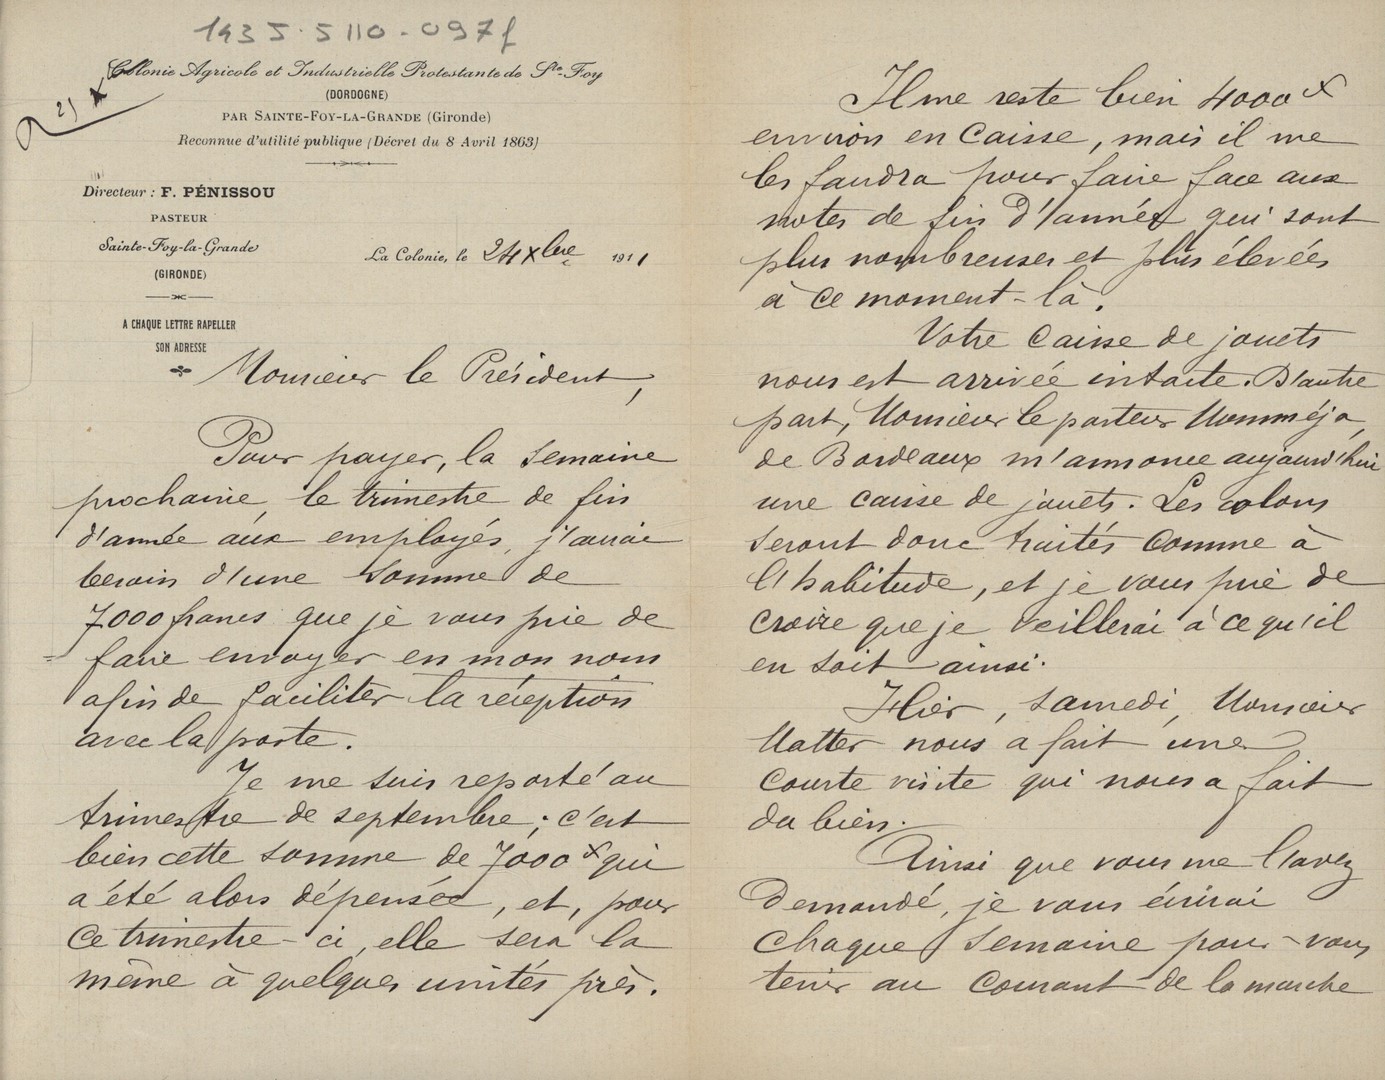 1435.5110-097f
Colonie Agricole et Industrielle Protestante de Ste-Foy
(DORDOGNE)
PAR SAINTE-FOY-LA-GRANDE (Gironde)
Reconnue d'utilité publique (Décret du 8 Avril 1863)
Directeur : F. PÉNISSOU
PASTEUR
Sainte-Foy-la-Grande
(GIRONDE)
La Colonie, le 24 Xbre 1911
A CHAQUE LETTRE RAPELLER
SON ADRESSE
Monsieur le Président,
Pour payer, la semaine
prochaine, le trimestre de fin
d'année aux employés, j'aurai
besoin d'une somme de
7000 francs que je vous prie de
faire envoyer en mon nom
afin de faciliter la réception
avec la poste.
Je me suis reporté au
trimestre de septembre ; c'est
bien cette somme de 7000 f qui
a été alors dépensée, et, pour
ce trimestre-ci, elle sera la
même à quelques unités près.
Il me reste bien 4000 f
environ en caisse, mais il me
les faudra pour faire face aux
notes de fin d'année qui sont
plus nombreuses et plus élevées
à ce moment-là.
Votre caisse de jouets
nous est arrivée intacte. D'autre
part, Monsieur le pasteur Momméja,
de Bordeaux m'annonce aujourd'hui
une caisse de jouets. Les colons
seront donc traités comme à
l'habitude, et je vous prie de
croire que je veillerai à ce qu'il
en soit ainsi.
Hier, samedi, Monsieur
Matter nous a fait une
courte visite qui nous a fait
du bien.
Ainsi que vous me l'avez
demandé, je vous écrirai
chaque semaine pour vous
tenir au courant de la marche